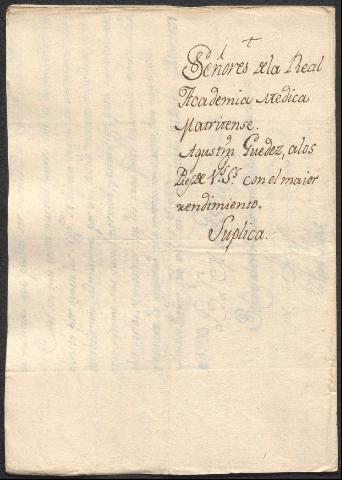 Señores de la Real
Academia Medica
Matritense.
Agustin Guedez, a los
Pies de V.S.S. con el maior
rendimiento.
Suplica.